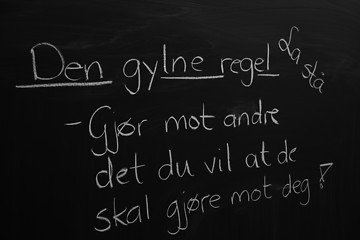 Den gylne regel
La stå
- Gjør mot andre
det du vil at de
skal gjøre mot deg!